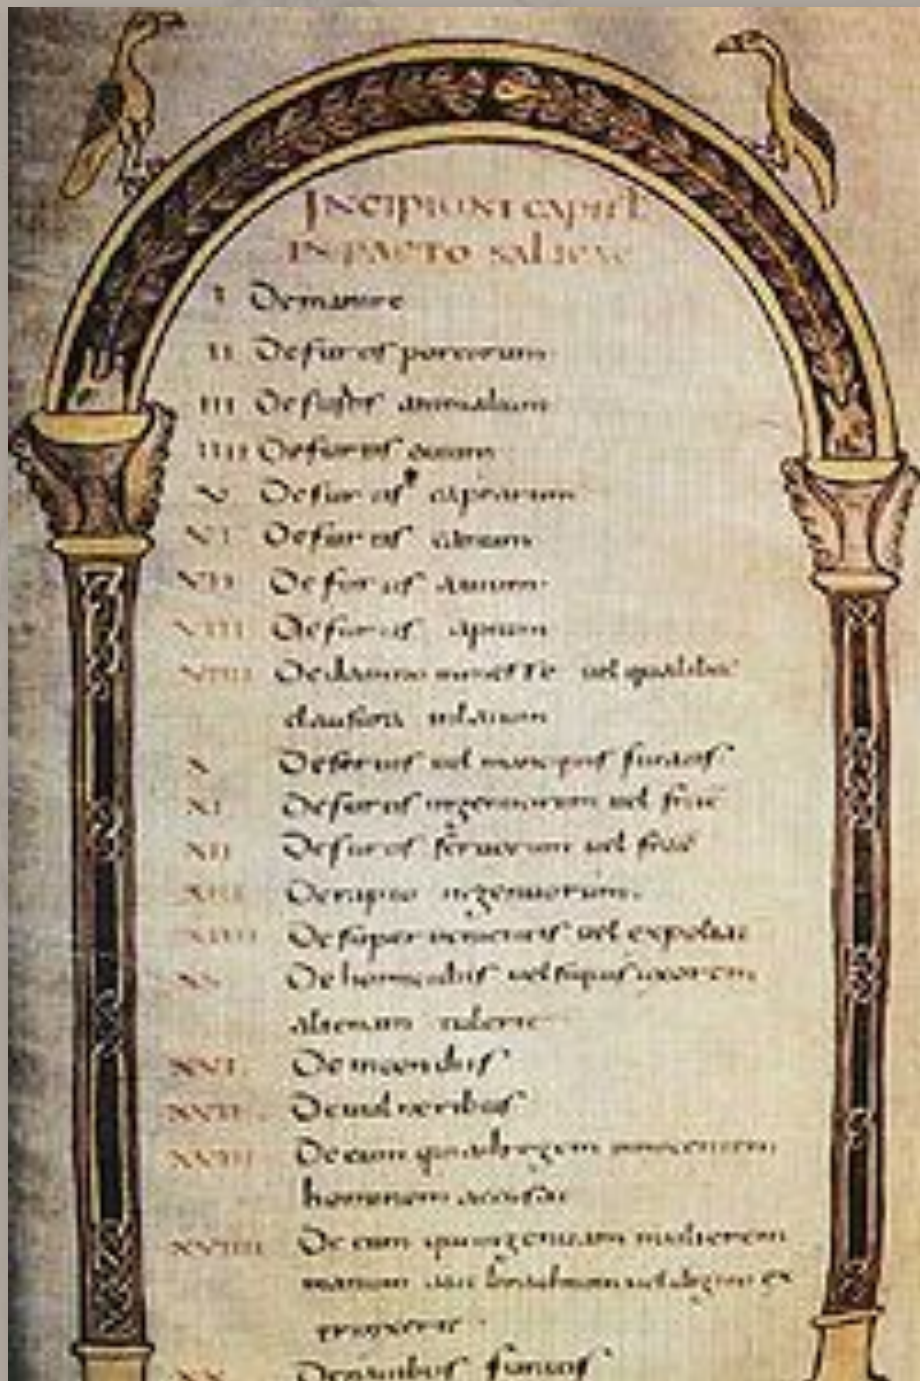 INCIPIUNT CAPITL
IN PACTO SALICAE
I De manire
II De furtis porcorum
III De furtis animalium
IIII De furtis ouium
V De furtis caprarum
VI De furtis canum
VII De furtis auium
VIII De furtis apium
VIIII De damno in messe uel qualibet
clausura inlatum
X De seruis uel mancipiis furatis
XI De furtis ingenuorum uel frac
XII De furtis seruorum uel frac
XIII De rapto ingenuorum
XIIII De superuenientis uel expoliat
XV De homicidiis uel si quis uxorem
alienam tulerit
XVI De incendiis
XVII De uulneribus
XVIII De eum qui ad regem innocentem
hominem accusat
XVIIII De eum qui ingenuam mulierem
manum aut brachium uel digitum ex
XX De nauibus furatis